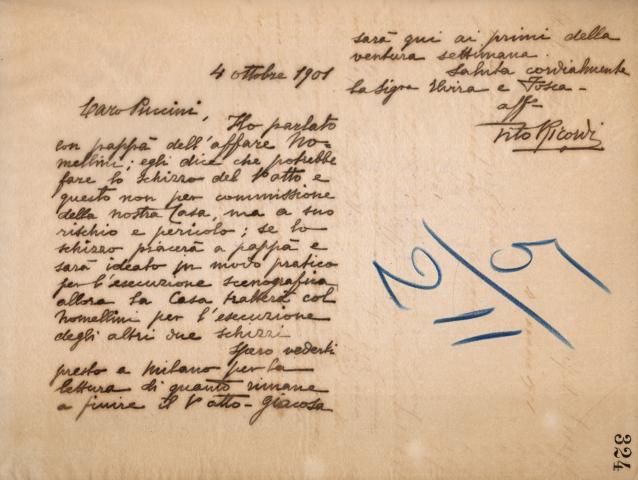 4 ottobre 1901
Caro Puccini,
Ho parlato
con pappà dell'affare No=
mellini; egli dice che potrebbe
fare lo schizzo del 1º atto e
questo non per commissione
della nostra Casa, ma a suo
rischio e pericolo; se lo
schizzo piacerà a pappà e
sarà ideato in modo pratico
per l'esecuzione scenografica
allora la Casa tratterà col
Nomellini per l'esecuzione
degli altri due schizzi
Spero vederti
presto a Milano per la
lettura di quanto rimane
a finire il 1º atto - Giacosa
sarà qui ai primi della
ventura settimana.
Saluta cordialmente
la Sigra Elvira e Tosca -
affº
Tito Ricordi
324